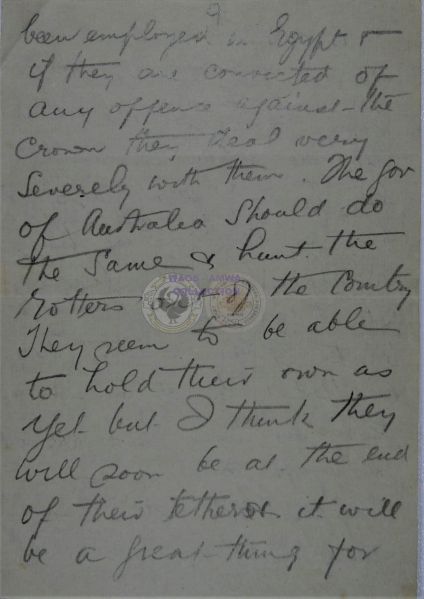 9
been employed in Egypt &
if they are convicted of
any offence against the
Crown they deal very
Severely with them. The gov
of Australia Should do
the Same & hunt the
rotters out of the Country
They seem to be able
to hold their own as
yet but I think they
will soon be at the end
of their tether & it will
be a great thing for